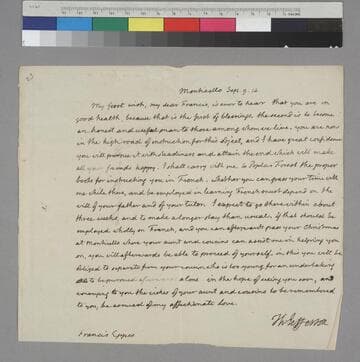 Monticello Sep. 9. 14
My first wish, my dear Francis, is ever to hear that you are in
good health, because that is the first of blessings. the second is to become
an honest and useful man to those among whom we live. you are now
in the high road of instruction for this object, and I have great confidence
you will pursue it with steadiness and attain the end which will make
all your friends happy. I shall carry with me to Poplar Forest the proper
books for instructing you in French. whether you can pass your time with
me while there, and be employed in learning French must depend on the
will of your father and of your tutor. I expect to go there within about
three weeks, and to make a longer stay than usual. if that should be
employed wholly on French, and you can afterwards pass your Christmas
at Monticello where your aunt and cousins can assist me in helping you
on, you will afterwards be able to proceed of yourself. in this you will be
obliged to separate from your cousin who is too young for an undertaking
to be pursued alone. in the hope of seeing you soon, and
conveying to you the wishes of your aunt and cousins to be remembered
to you, be assured of my affectionate love.
Th: Jefferson
Francis Eppes